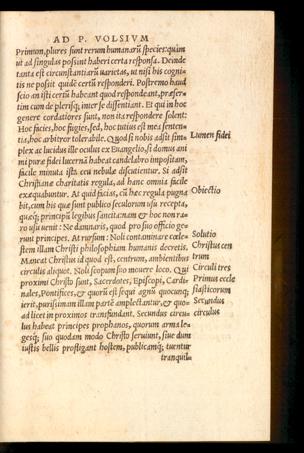 AD P. VOLSIVM
Primum, plures sunt rerum humanarũ species: quàm
ut ad singulas possint haberi certa responsa. Deinde
tanta est circunstantiarũ uarietas, ut nisi his cogni-
tis ne possit quidẽ certũ responderi. Postremo haud
scio an isti certũ habeant quod respondeant, præser-
tim cum de plerisq; inter se dissentiant. Et qui in hoc
genere cordatiores sunt, non ita respondere solent:
Hoc facies, hoc fugies, sed, hoc tutius est mea senten-
tia, hoc arbitror tolerabile. Quod si nobis adsit sim-
plex ac lucidus ille oculus ex Euangelio, si domus ani
mi puræ fidei lucernã habeat candelabro impositam,
facile minuta ista ceu nebulæ discutientur. Si adsit
Christianæ charitatis regula, ad hanc omnia facile
exæquabuntur. At quid facies, cũ hæc regula pugna
bit, cum his quæ sunt publico seculorum usu recepta,
quæq; principũ legibus sancita: nam & hoc non ra-
ro usu uenit: Ne damnaris, quod pro suo officio ge-
runt principes. At rursum: Noli contaminare cœle-
stem illam Christi philosophiam humanis decretis.
Maneat Christus id quod est, centrum, ambientibus
circulis aliquot. Noli scopum suo mouere loco. Qui
proximi Christo sunt, Sacerdotes, Episcopi, Cardi-
nales, Pontifices, & quorũ est sequi agnũ quocunq;
ierit, purissimam illam partẽ amplectantur, & quo-
ad licet in proximos transfundant. Secundus circu-
lus habeat principes prophanos, quorum arma le-
gesq; suo quodam modo Christo seruiunt, siue dum
iustis bellis profligant hostem, publicamq; tuentur
tranquil-
Lumen fidei
Obiectio
Solutio
Christus cen
trum
Circuli tres
Primus eccle
siasticorum
Secundus
circulus